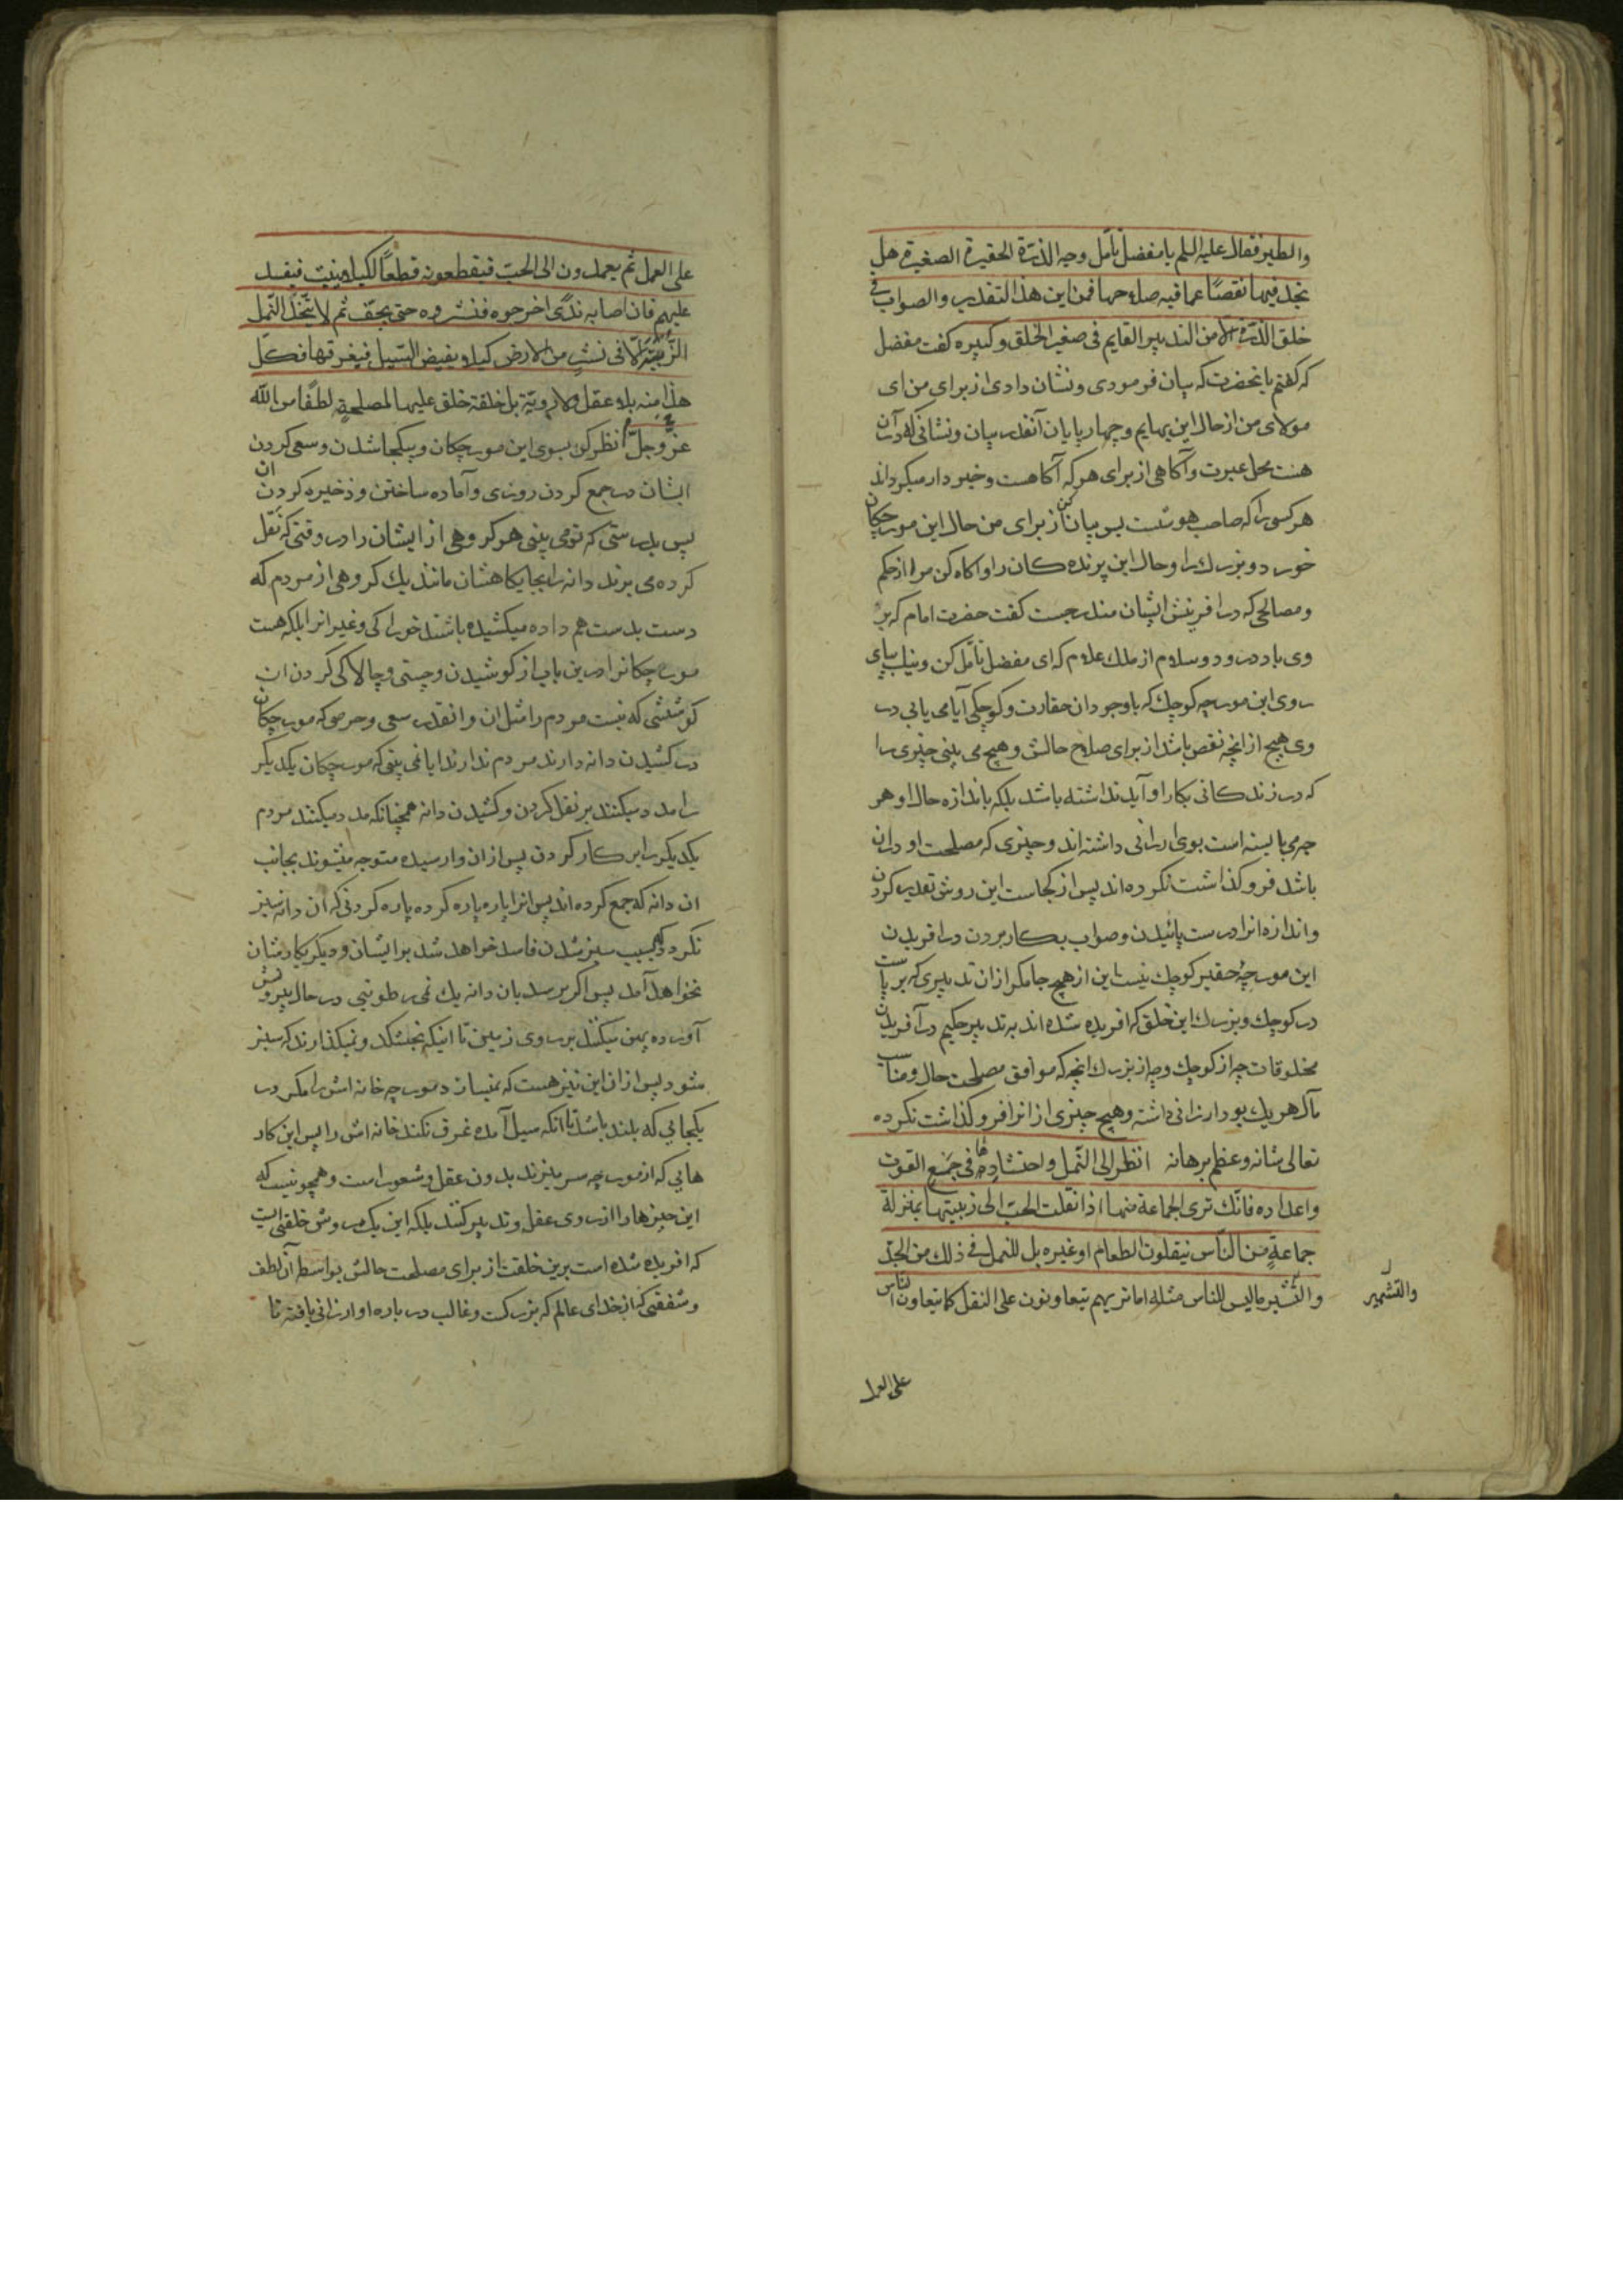 والطیر فقال علیه السلم یا مفضل تأمل وجه الذرّة الحقیرة الصغیرة هل
تجد فیها نقصًا عما فیه صلاحها فمن این هذا التقدیر والصواب فی
خلق الذرّة الا من التدبیر القایم فی صغیر الخلق و کبیره کفت مفضل
که کفتم بانحضرت که بیان فرمودی و نشان دادی از برای من ای
مولای من از حال این بهایم و چهار پایان آنقدر بیان و نشانی که در آن
هست محل عبرت و آکاهی از برای هر که آکاهست و خبردار میکرداند
هر کسی را که صاحب هوشست پس بیان کن از برای من حال این مورچکان
خورد و بزرك را و حال این پرنده کان را و اکاه کن مرا از حکم
و مصالحی که در افرینش ایشان مندرجست کفت حضرت امام که بر
وی باد درود و سلام از ملك علام که ای مفضل تأمل کن و نیك بیای
روی این مورچه کوچك که باوجود ان حقارت و کوچکی آیا می یابی در
وی هیچ از انچه نقص باشد از برای صلاح حالش و هیچ می بینی چیزی را
که در زندکانی بکار او آید نداشته باشد بلکه باندازه حال او هر
چه می بایسته است بوی ارزانی داشته اند و چیزی که مصلحت او دران
باشد فروکذاشت نکرده اند پس از کجاست این روش تقدیر کردن
و اندازه انرا درست پائیدن و صواب بکار بردن در افریدن
این مورچهٔ حقیر کوچك نیست این از هیچ جا مکر از ان تدبیری که بر پاست
در کوچك و بزرك این خلق که افریده شده اند به تدبیر حکیم در آفریدن
مخلوقات چه از کوچك و چه از بزرك انچه که موافق مصلحت حال و مناسب
مآل هریك بود ارزانی داشته و هیچ چیزی از انرا فروکذاشت نکرده
تعالی شانه و عظم برهانه انظر الی النّمل و احتشادها فی جَمع القوت
و اعداده فانّك تری الجماعة منها اذا نقلت الحبّ الی زبیتها بمنزلة
جماعةٍ من النّاس ینقلون الطعام او غیره بل للنمل فی ذلك من الجدّ
والتشمیر ما لیس للناس مثله اما تریهم یتعاونون علی النقل کما یتعاون الناس
والتشمیر
علی العمل
علی العمل ثم یعمدون الی الحبّ فیقطعونه قطعًا لکیلا ینبت فیفسد
علیهم فان اصابه ندًی اخرجوه فنشروه حتی یجفّ ثم لا یتّخذ النّمل
الزّبیة الّا فی نشز من الارض کیلا یفیض السّیل فیغرقها فکلّ
هذا منه بلا عقل ولا رویّة بل خلقة خلق علیها لمصلحةٍ لطفًا من الله
عز و جلّ انظر کن بسوی این مورچکان و بیکجا شدن و سعی کردن
ایشان در جمع کردن روزی و آماده ساختن و ذخیره کردن ان
پس بدرستی که تو می بینی هر کروهی از ایشان را در وقتی که نقل
کرده می برند دانه را بجایکاهشان مانند یك کروهی از مردم که
دست بدست هم داده میکشیده باشند خوراکی و غیر انرا بلکه هست
مورچکانرا در ین باب از کوشیدن و چستی و چالاکی کردن ان
کوششی که نیست مردم را مثل ان و انقدر سعی و حرصی که مورچکان
در کشیدن دانه دارند مردم ندارند ایا نمی بینی که مورچکان یکدیکر
را مدد میکنند بر نقل کردن و کشیدن دانه همچنانکه مدد میکنند مردم
یکدیکر را بر کار کردن پس از ان وارسیده متوجه میشوند بجانب
ان دانه که جمع کرده اند پس انرا پاره پاره کرده پاره کردنی که آن دانه سبز
نکردد که بسبب سبز شدن فاسد خواهد شد بر ایشان و دیکر بکارشان
نخواهد آمد پس اکر برسد بان دانه یك نمی رطوبتی در حال بیرونش
آورده پهن میکنند بر روی زمین تا اینکه بخشکد و نمیکذارند که سبز
شود پس از ان این نیز هست که نمیسازد مورچه خانه اش را مکر در
یکجایی که بلند باشد تا انکه سیل آمده غرق نکند خانه اش را پس این کار
هایی که از مورچه سر میزند بدون عقل و شعور است و همچو نیست که
این چیزها را از روی عقل و تدبیر کنند بلکه این یك روش خلقتی است
که افریده شده است برین خلقت از برای مصلحت حالش بواسطه آن لطف
و شفقتی که از خدای عالم که بزرکست و غالب در باره او ارزانی یافته تا